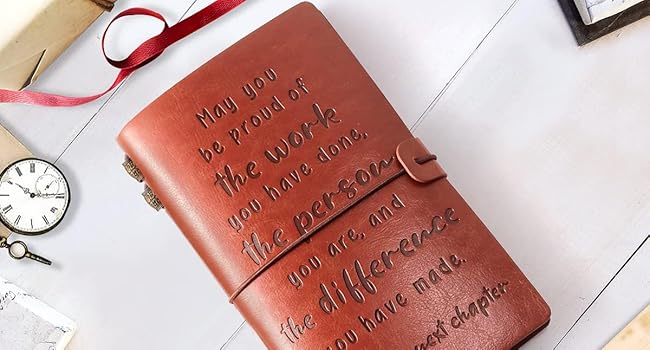 May you
be proud of
the work
you have done,
the person
you are, and
the difference
you have made.
next chapter